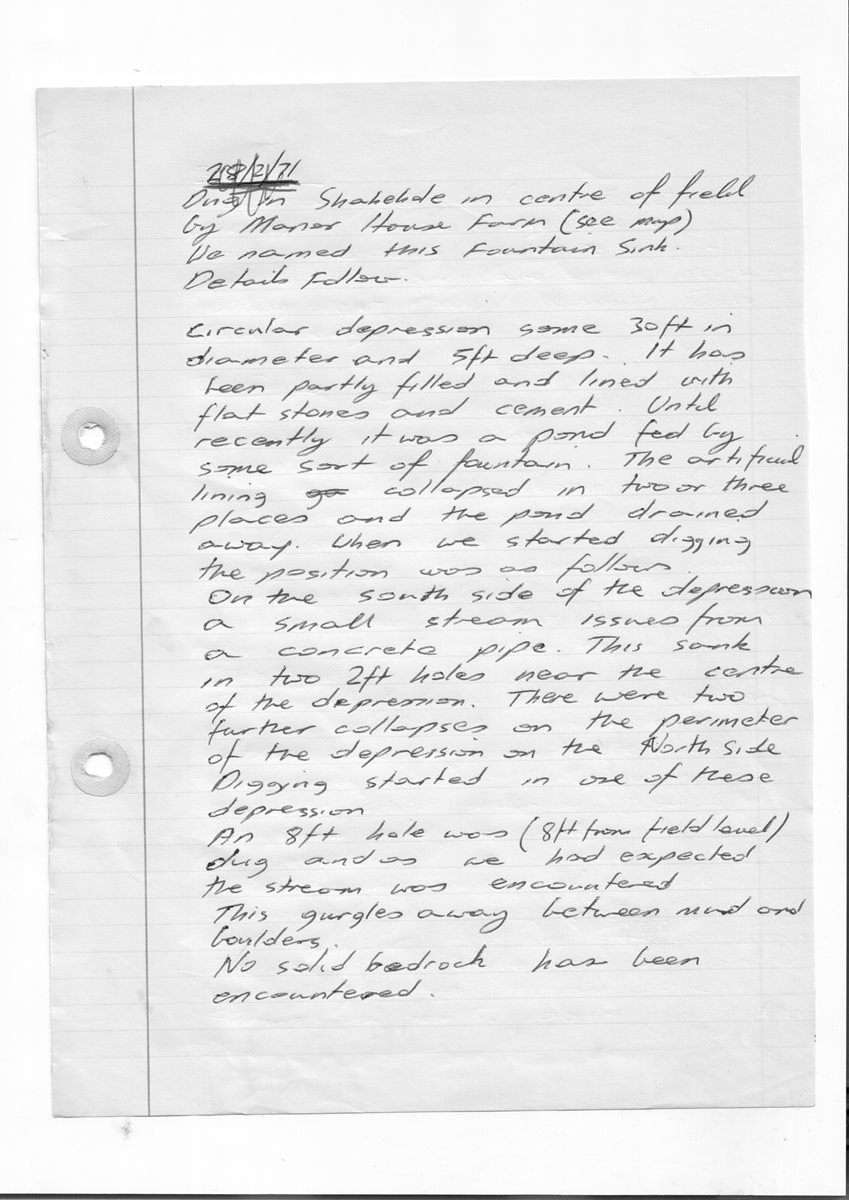 28/2/71
Dug in Shakehole in centre of field
by Manor House Farm (see map)
We named this Fountain Sink.
Details Follow.
Circular depression some 30ft in
diameter and 5ft deep. It has
been partly filled and lined with
flat stones and cement. Until
recently it was a pond fed by
some sort of fountain. The artificial
lining collapsed in two or three
places and the pond drained
away. When we started digging
the position was as follows.
On the south side of the depression
a small stream issues from
a concrete pipe. This sank
in two 2ft holes near the centre
of the depression. There were two
further collapses on the perimeter
of the depression on the North side
Digging started in one of these
depression
An 8ft hole was (8ft from field level)
dug and as we had expected
the stream was encountered
This gurgles away between mud and
boulders.
No solid bedrock has been
encountered.